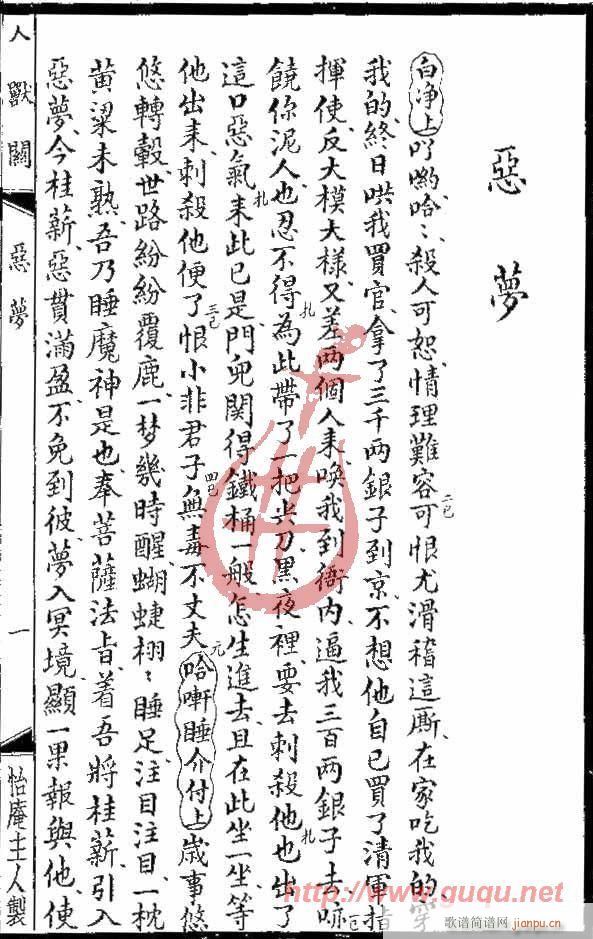 惡夢
白净上吖喲哈〻殺人可恕情理難容可恨尤滑稽這厮在家吃我的穿
我的終日哄我買官拿了三千兩銀子到京不想他自己買了清軍指
揮使反大模大樣又差兩個人来喚我到衙内逼我三百兩銀子去嚇
饒你泥人也忍不得為此帶了一把尖刀黑夜裡要去刺殺他也出了
這口惡氣来此已是門兜関得鐵桶一般怎生進去且在此坐一坐等
他出来刺殺他便了恨小非君子無毒不丈夫哈㖇睡介付上歲事悠
悠轉轂世路紛紛覆鹿一梦幾時醒蝴蝶栩〻睡足注目注目一枕
黄粱未熟吾乃睡魔神是也奉菩薩法旨着吾將桂薪引入
惡夢今桂薪惡貫滿盈不免到彼夢入冥境顯一果報與他使
人獸關
惡夢
一
怡庵主人製
http://www.guqu.net
歌谱简谱网
jianpu.cn